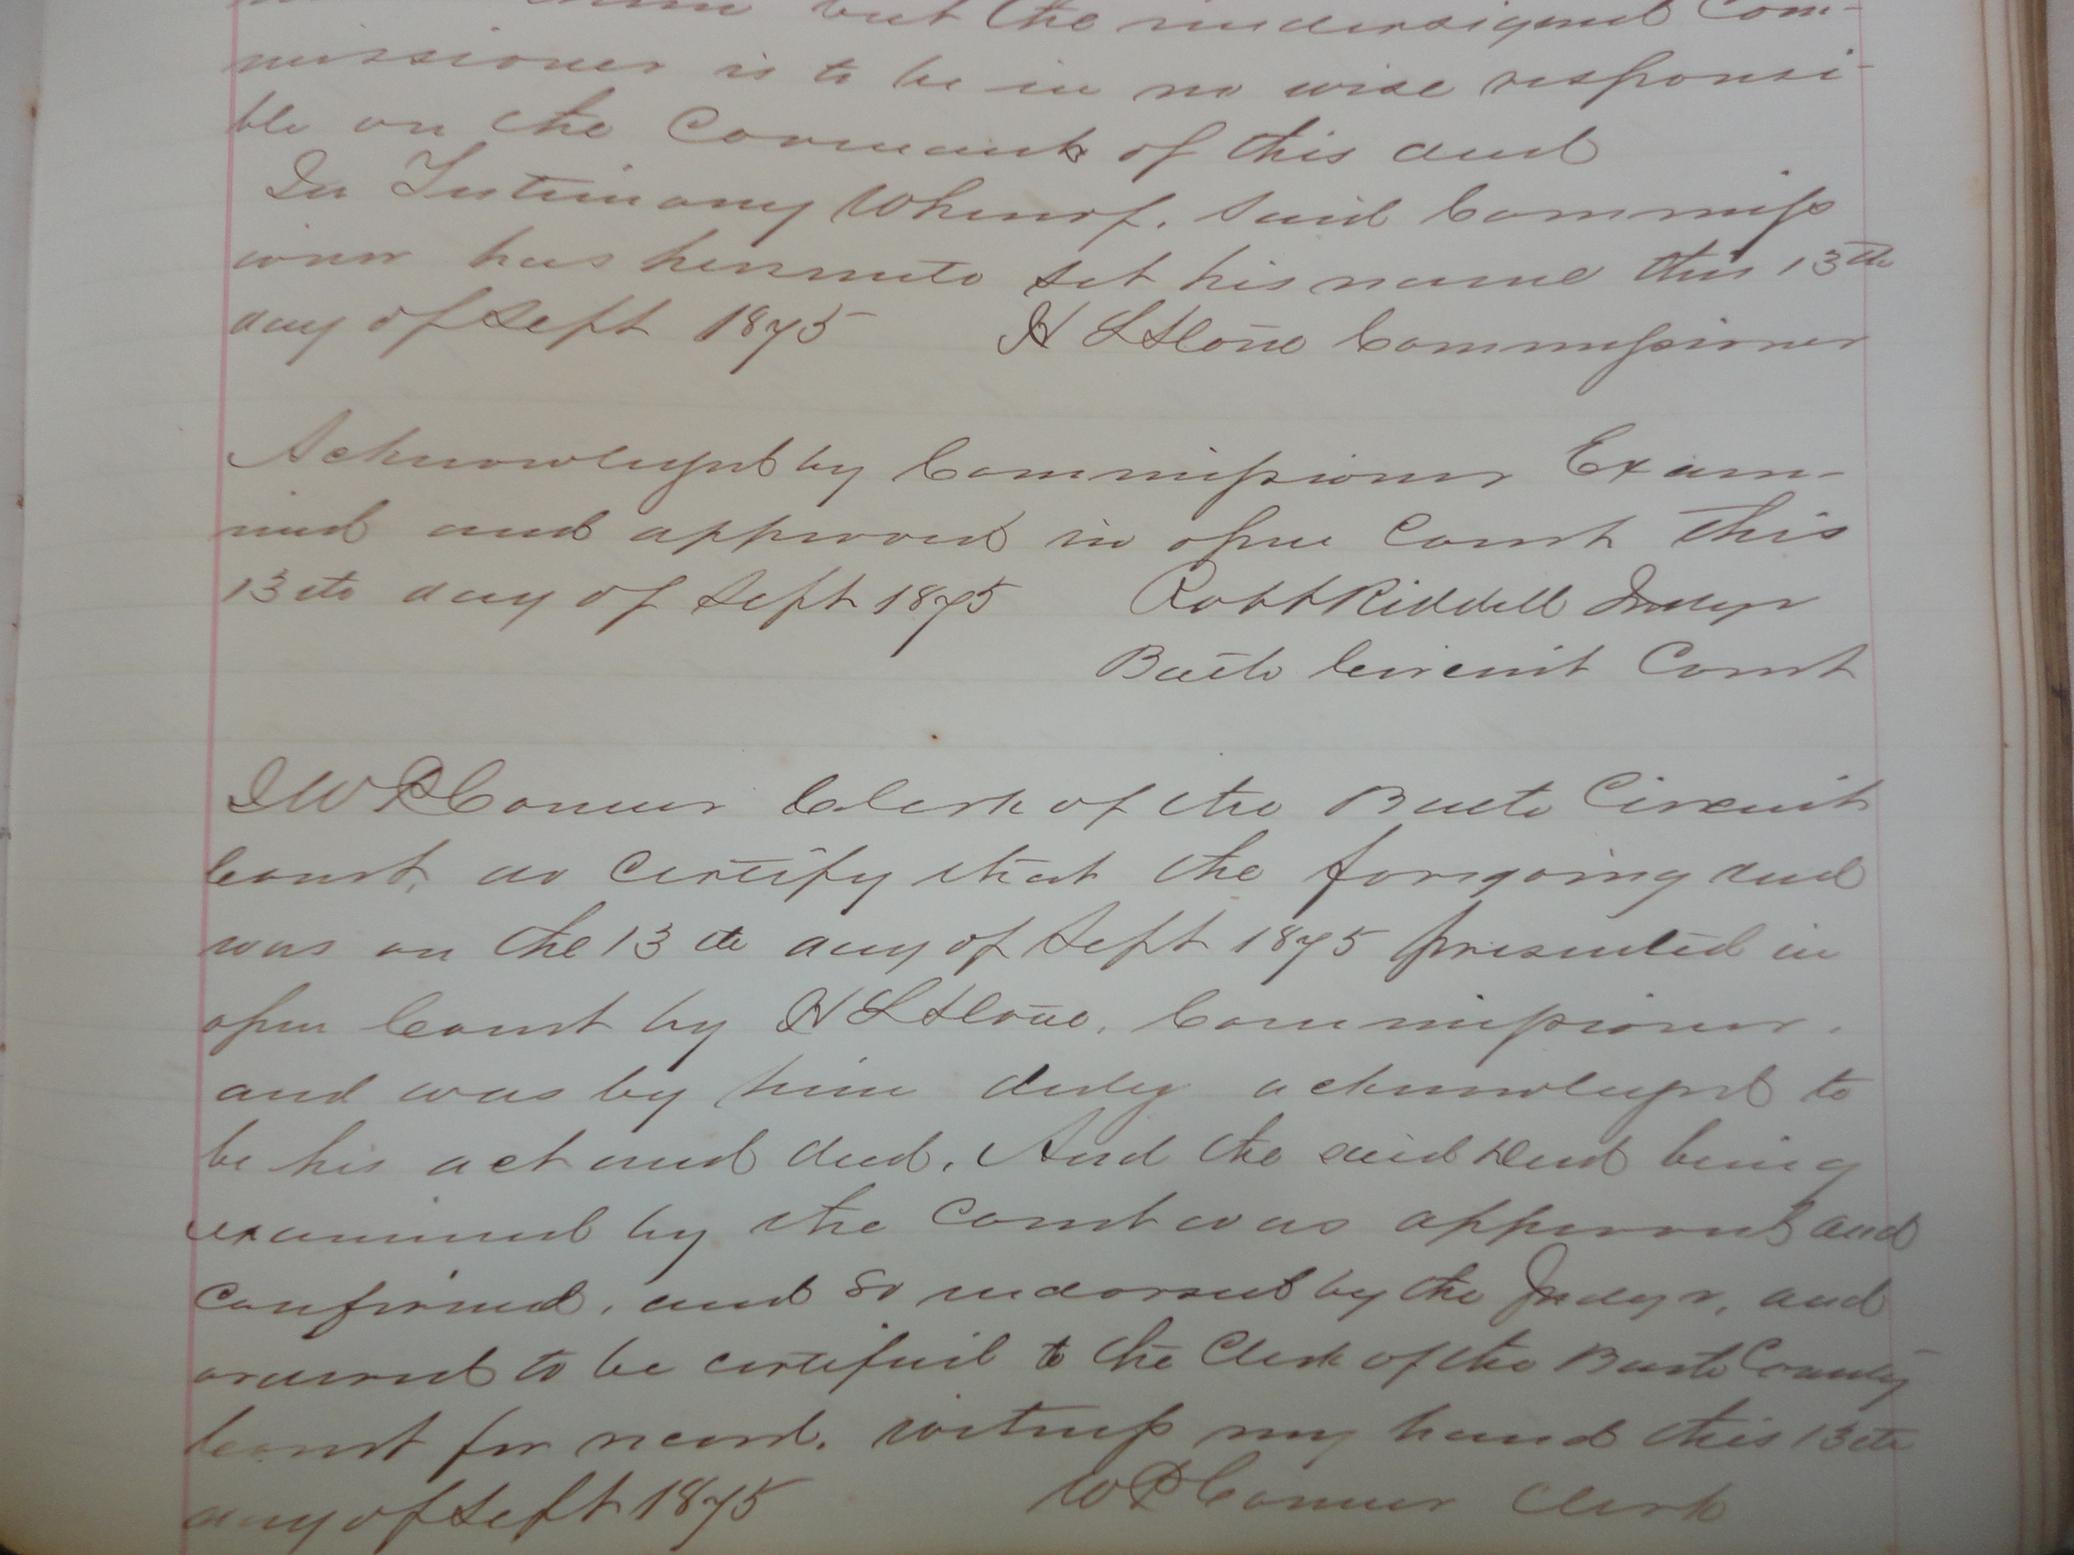 them but the undersigned Com-
missioner is to be in no wise responsi-
ble on the Covenants of this deed
In Testimony Whereof, said Commiss
ioner has hereunto set his name this 13th
day of Sept 1875 H L Stone Commissioner
Acknowledged by Commissioner Exam-
ined and approved in open Court this
13th day of Sept 1875 Robt Riddell Judge
Bath Circuit Court
I W P Conner Clerk of the Bath Circuit
Court, do certify that the foregoing deed
was on the 13th day of Sept 1875 presented in
open Court by H L Stone, Commissioner,
and was by him duly acknowledged to
be his act and deed. And the said Deed being
examined by the Court was approved and
confirmed, and so endorsed by the Judge, and
ordered to be certified to the Clerk of the Bath County
Court for record. Witness my hand this 13th
day of Sept 1875 W P Conner Clerk